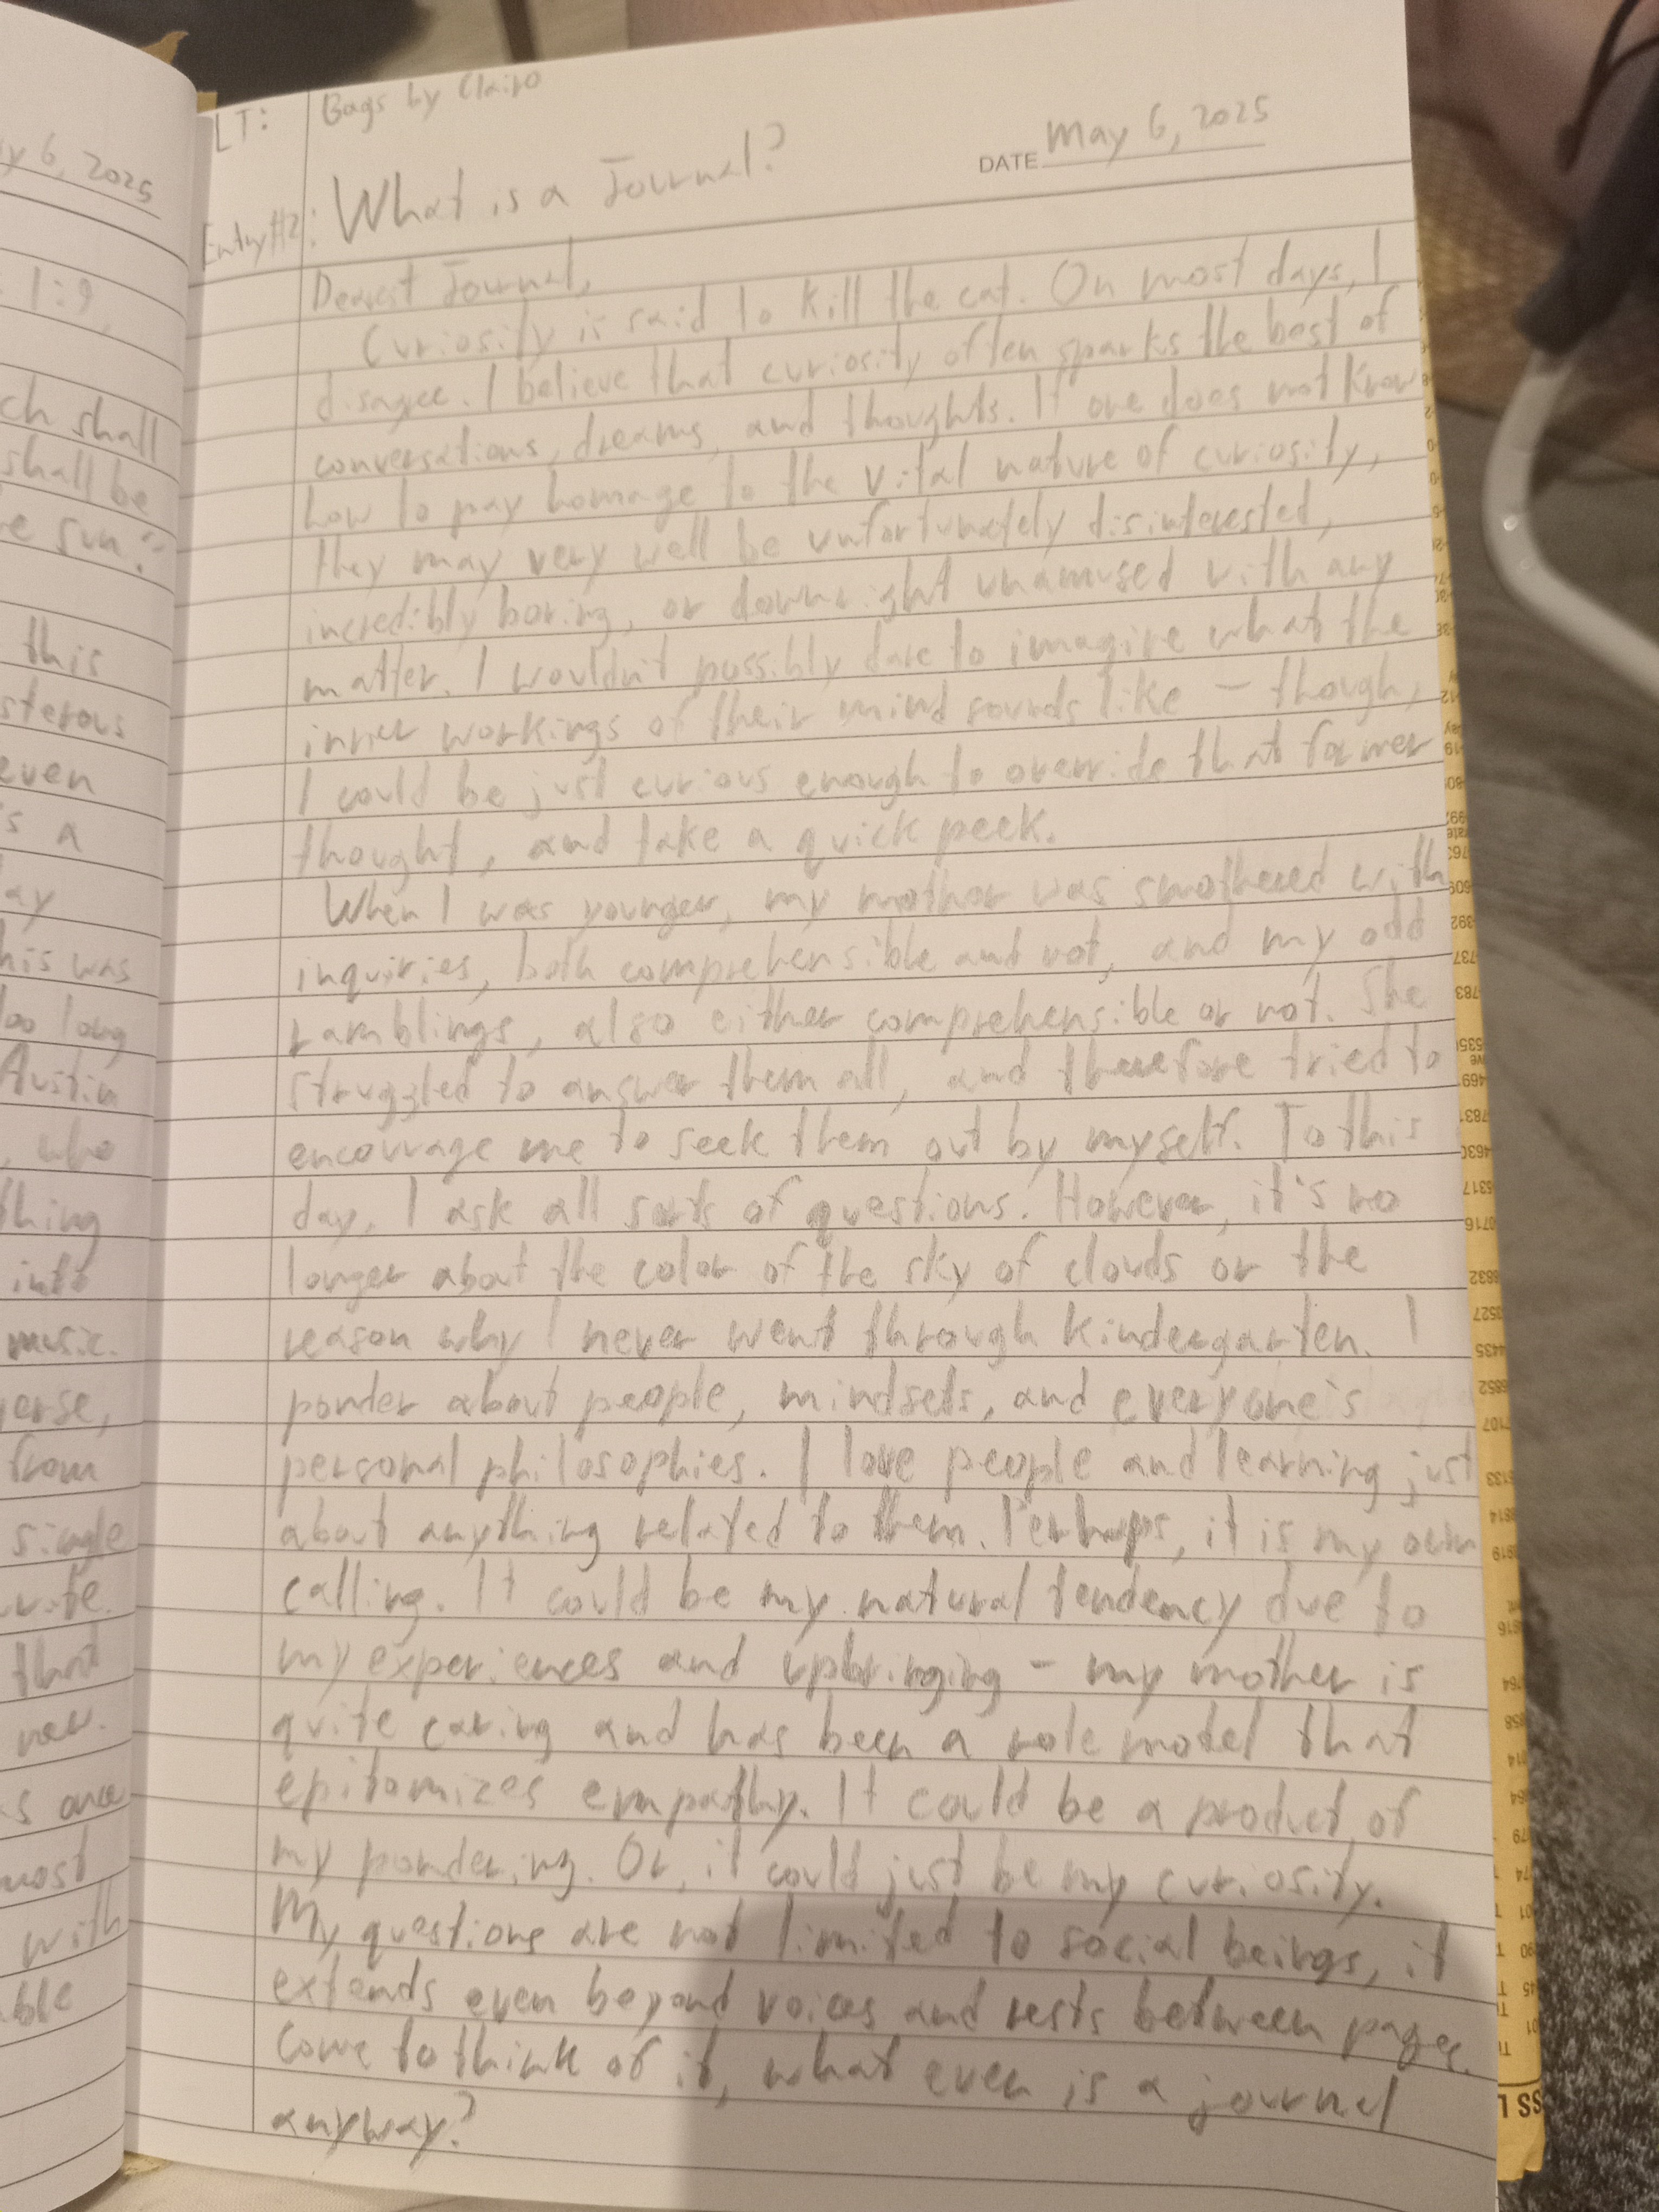 y 6, 2025
1:9
ch shall
shall be
e sun?
this
sterous
even
's a
ay
his was
too long
Austin
, who
thing
into
music.
erse,
from
single
that
s once
most
with
able
LT: Bags by Clairo
DATE May 6, 2025
Entry #2: What is a Journal?
Dearest Journal,
Curiosity is said to kill the cat. On most days, I
disagree. I believe that curiosity often sparks the best of
conversations, dreams, and thoughts. If one does not know
how to pay homage to the vital nature of curiosity,
they may very well be unfortunately disinterested,
incredibly boring, or downright unamused with any
matter. I wouldn't possibly dare to imagine what the
inner workings of their mind sounds like – though,
I could be just curious enough to override that former
thought, and take a quick peek.
When I was younger, my mother was smothered with
inquiries, both comprehensible and not, and my odd
ramblings, also either comprehensible or not. She
struggled to answer them all, and therefore tried to
encourage me to seek them out by myself. To this
day, I ask all sorts of questions. However, it's no
longer about the color of the sky of clouds or the
reason why I never went through kindergarten. I
ponder about people, mindsets, and everyone's
personal philosophies. I love people and learning just
about anything related to them. Perhaps, it is my own
calling. It could be my natural tendency due to
my experiences and upbringing – my mother is
quite caring and has been a role model that
epitomizes empathy. It could be a product of
my pondering. Or, it could just be my curiosity.
My questions are not limited to social beings, it
extends even beyond voices and rests between pages.
Come to think of it, what even is a journal
anyway?